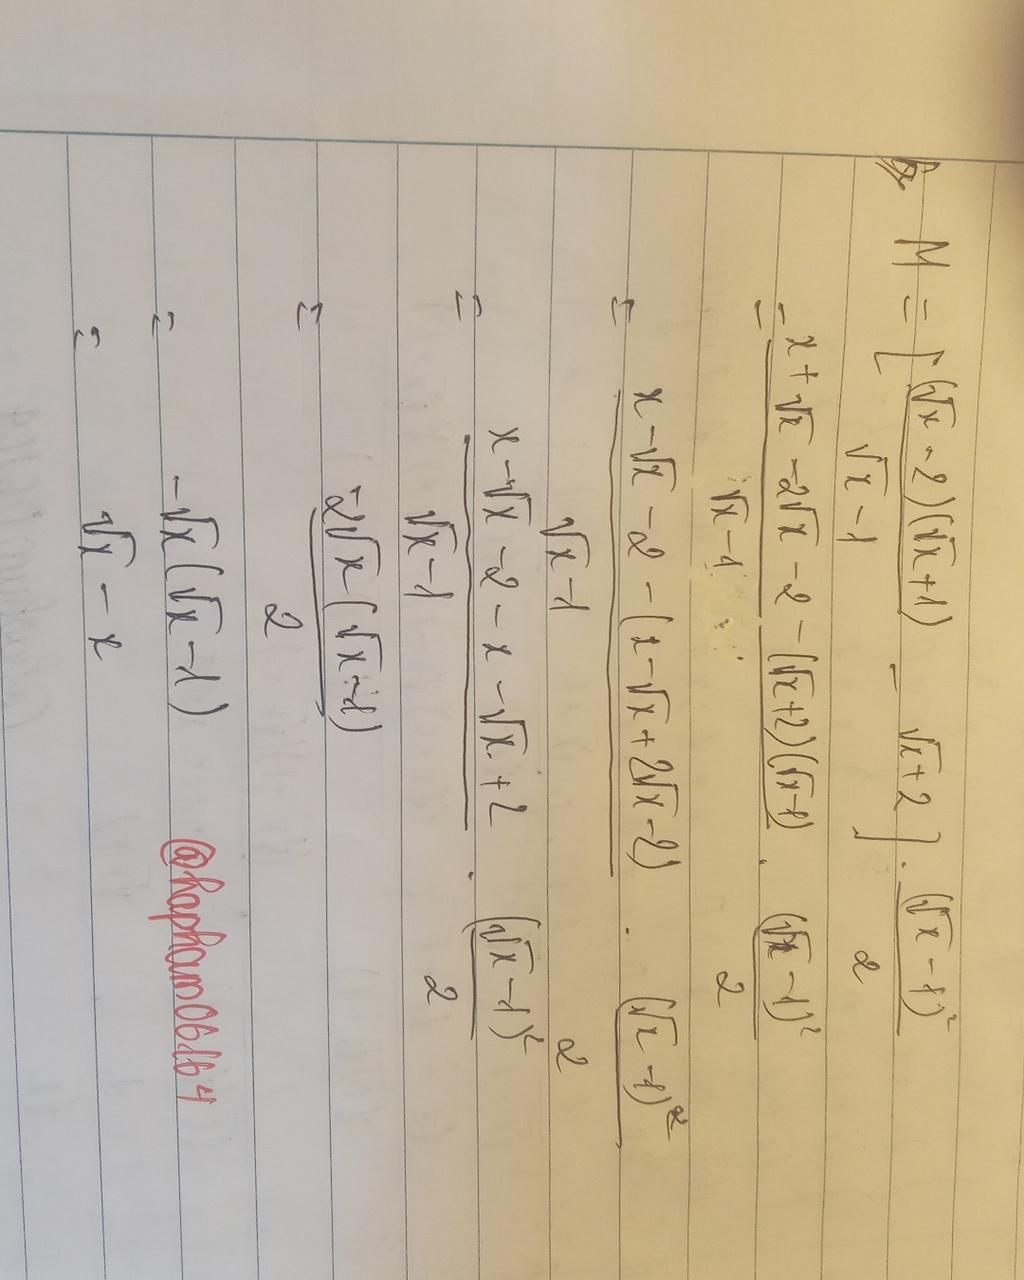 M = [ (√x - 2)(√x + 1) / (√x - 1) - √x + 2 ] . (√x - 1)² / 2
= x + √x - 2√x - 2 - (√x + 2)(√x - 1) / (√x - 1) . (√x - 1)² / 2
= x - √x - 2 - (x - √x + 2√x - 2) / (√x - 1) . (√x - 1)² / 2
= x - √x - 2 - x - √x + 2 / (√x - 1) . (√x - 1)² / 2
= -2√x (√x - 1) / 2
= -√x (√x - 1)
= √x - x
@hapham061b4